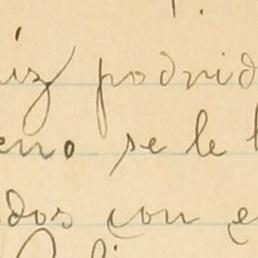 iz podrid
eno se le
dos con e